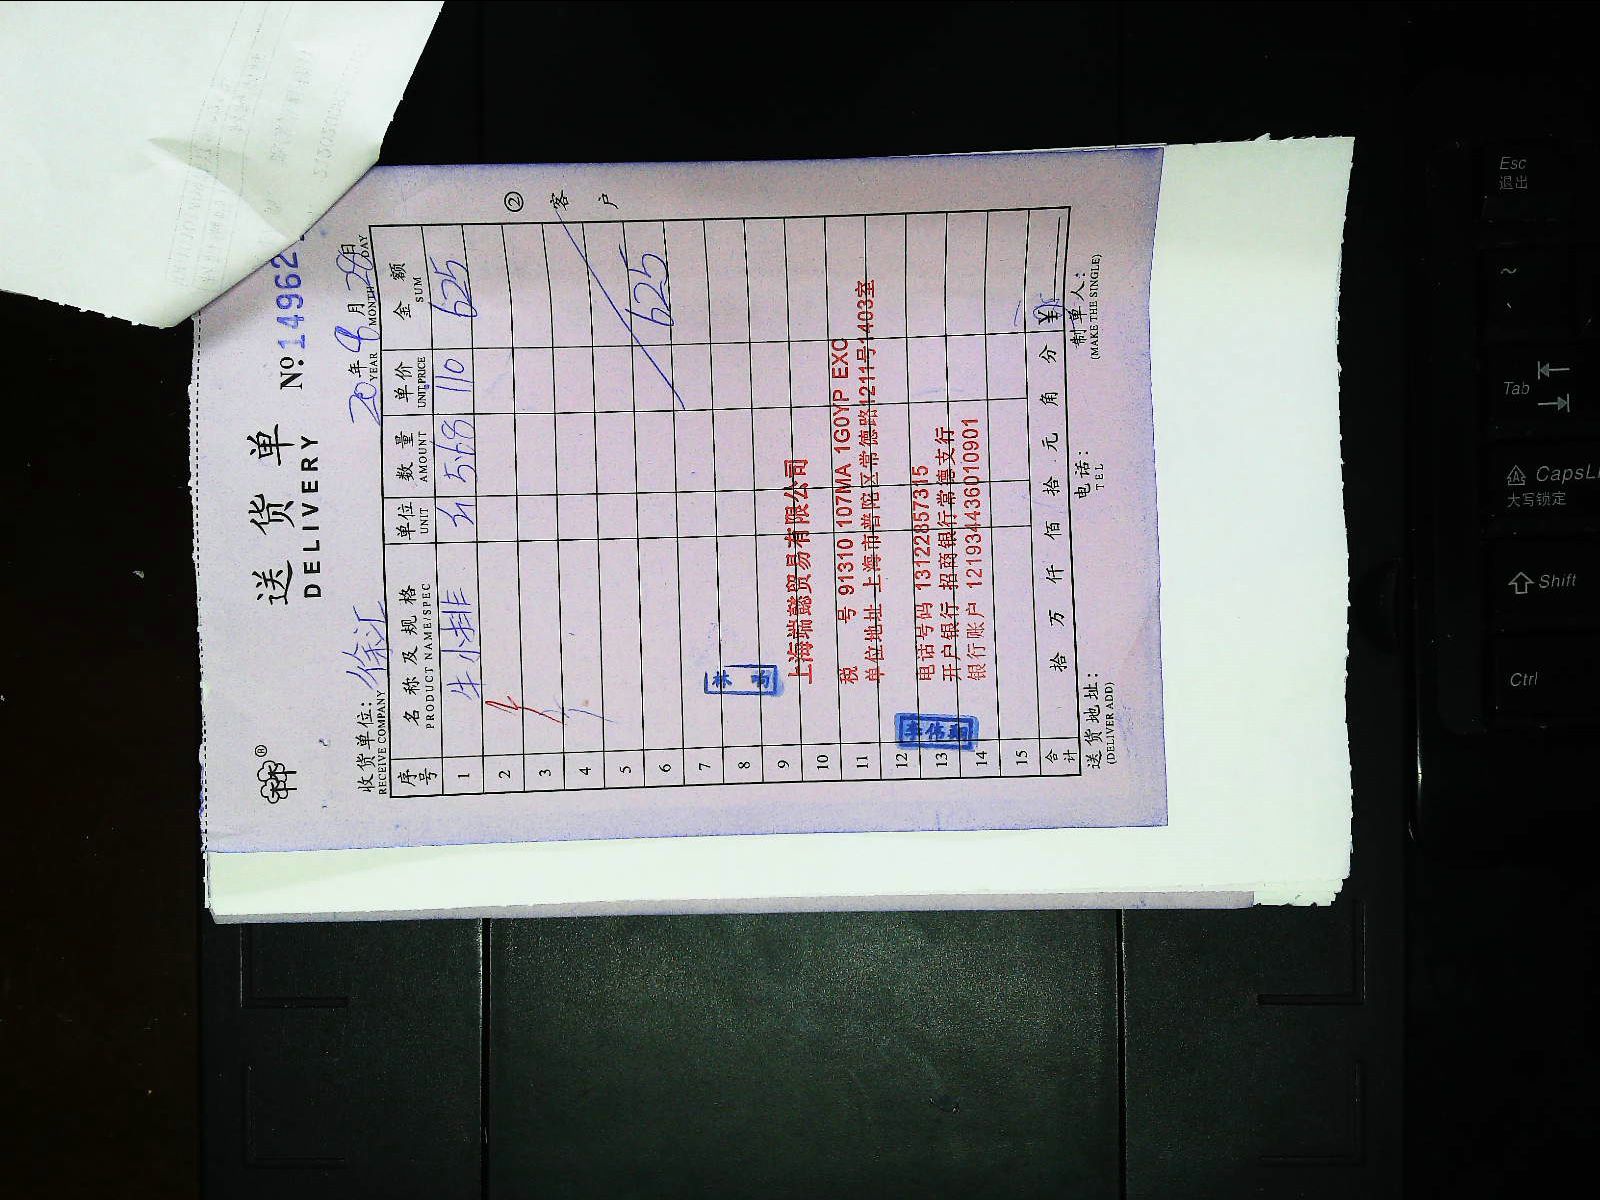 送货单
DELIVERY
№: 14962
收货单位: 徐汇
RECEIVE COMPANY
20年 9月 28日
YEAR MONTH DAY
序号 名称及规格 单位 数量 单价 金额
PRODUCT NAME/SPEC UNIT AMOUNT UNIT.PRICE SUM
1 牛排 斤 5.68 110 625
2
3
4
5
6 625
7
8
9
10
11
12
13
14
15
② 客户
上海端懿贸易有限公司
税 号 91310 107MA 1G0YP EXC
单位地址 上海市普陀区常德路1211号1403室
电话号码 13122857315
开户银行 招商银行常德支行
银行账户 121934436010901
李伟
合计 拾 万 仟 佰 拾 元 角 分 ¥
送货地址: 电话: 制单人:
(DELIVER ADD) TEL (MAKE THE SINGLE)
Esc
退出
~
Tab
CapsL
大写锁定
Shift
Ctrl